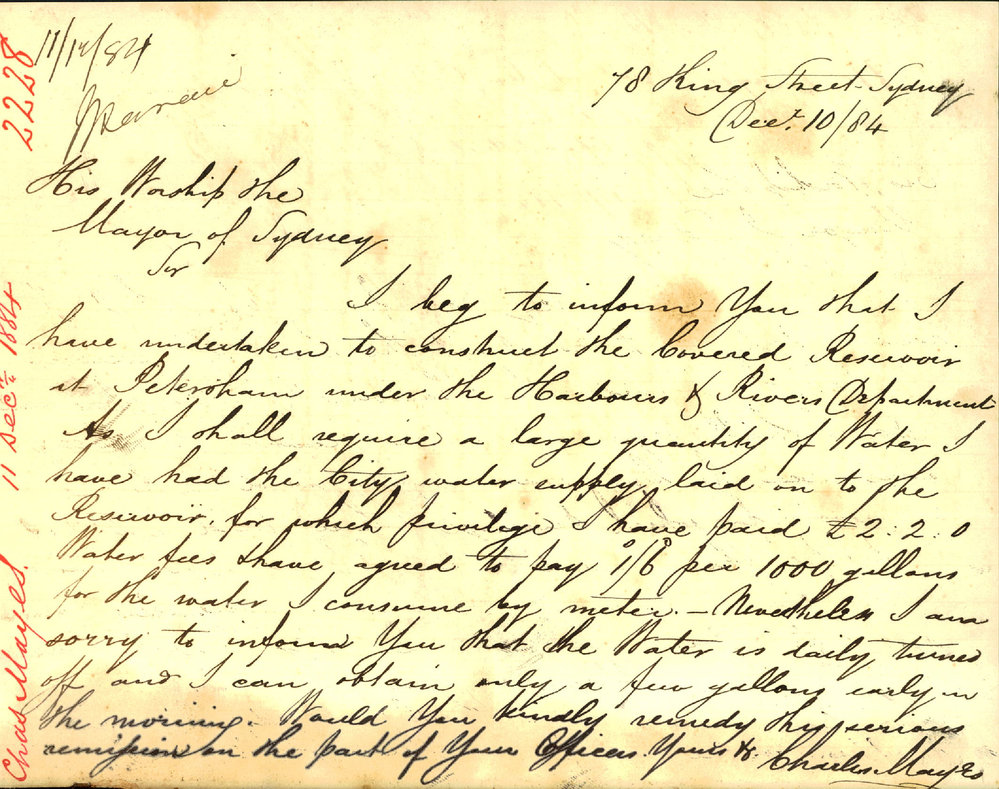 2228
11/12/84
78 King Street Sydney
Decr. 10/84
His Worship the
Mayor of Sydney
Sir
I beg to inform You that I
have undertaken to construct the Covered Reservoir
at Petersham under the Harbours & Rivers Department
As I shall require a large quantity of Water I
have had the City water supply laid on to the
Reservoir, for which privilege I have paid £2:2:0
Water fees & have agreed to pay 1/6 per 1000 gallons
for the water I consume by meter. - Nevertheless I am
sorry to inform You that the Water is daily turned
off and I can obtain only a few gallons early in
the morning. Would You kindly remedy this serious
remission on the part of Your Officers. Yours &c
Charles Mayes
11 Decr. 1884
Chas Mayes.